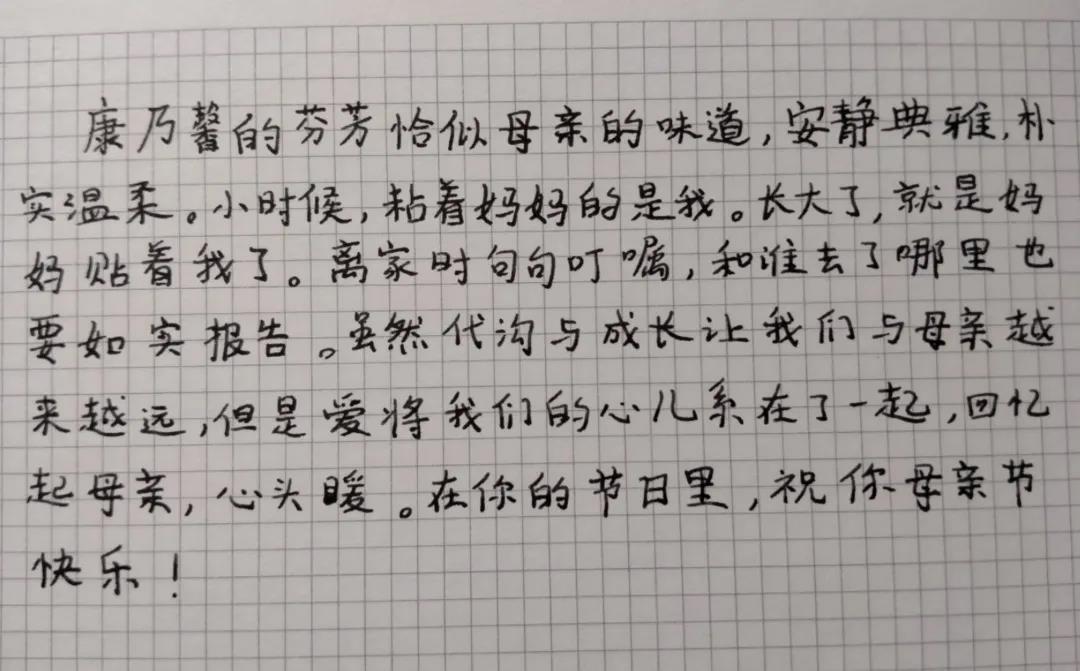 康乃馨的芬芳恰似母亲的味道,安静典雅,朴
实温柔。小时候,粘着妈妈的是我。长大了,就是妈
妈贴着我了。离家时句句叮嘱,和谁去了哪里也
要如实报告。虽然代沟与成长让我们与母亲越
来越远,但是爱将我们的心儿系在了一起,回忆
起母亲,心头暖。在你的节日里,祝你母亲节
快乐!